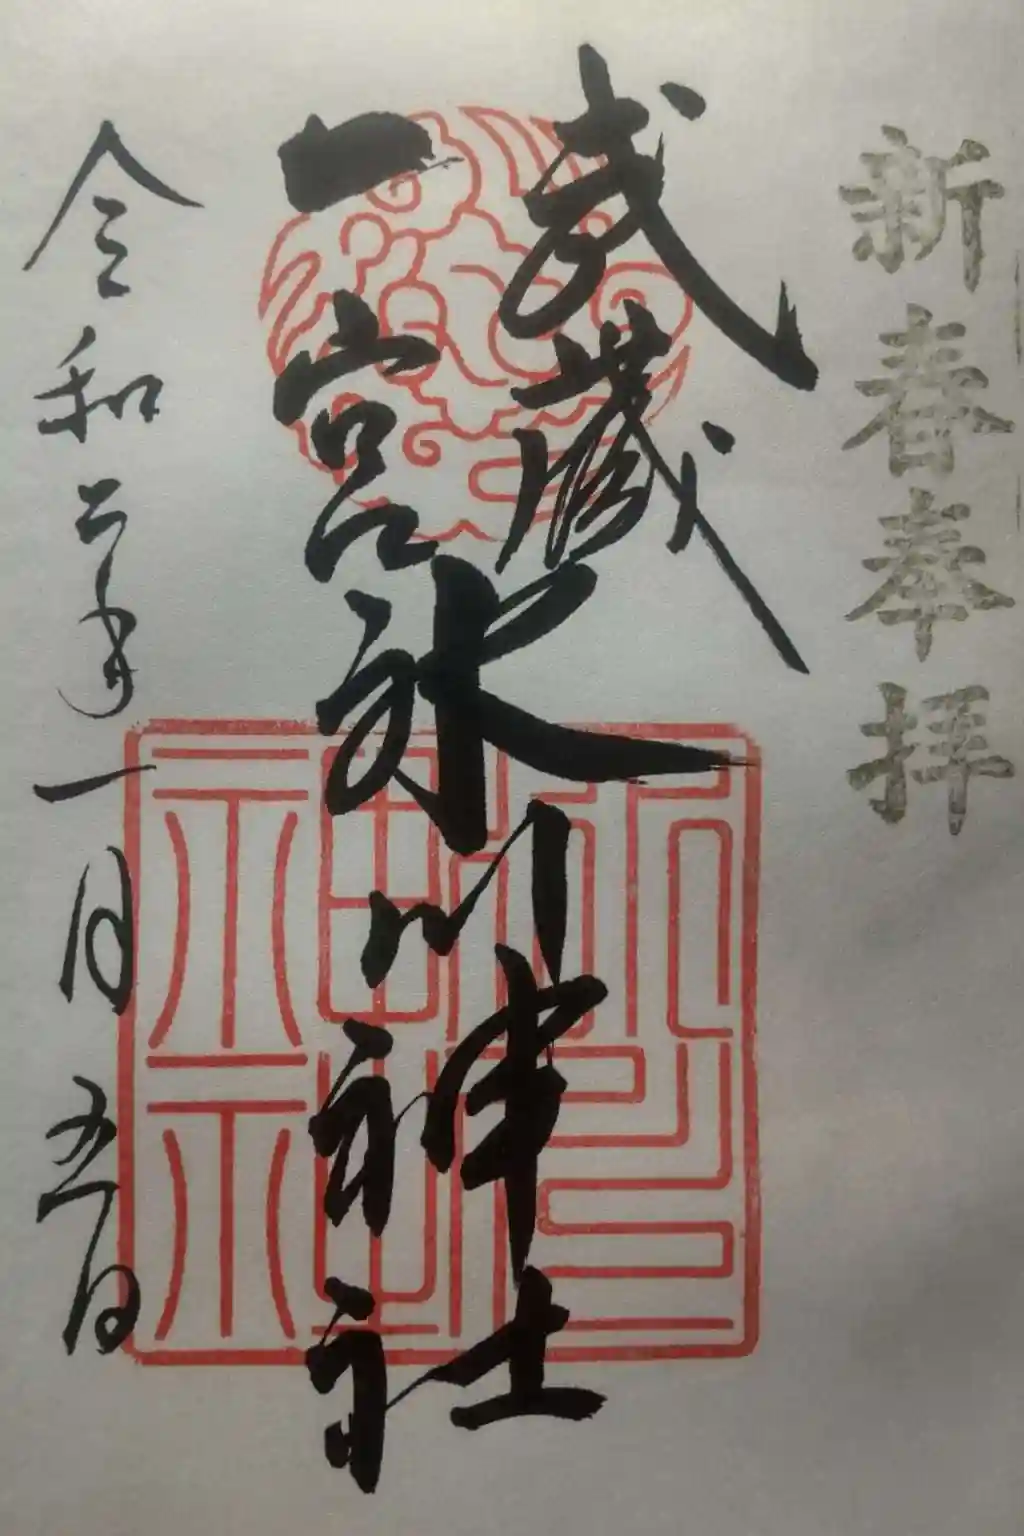 新春奉拝
武蔵
一宮氷川神社
令和二年一月五日